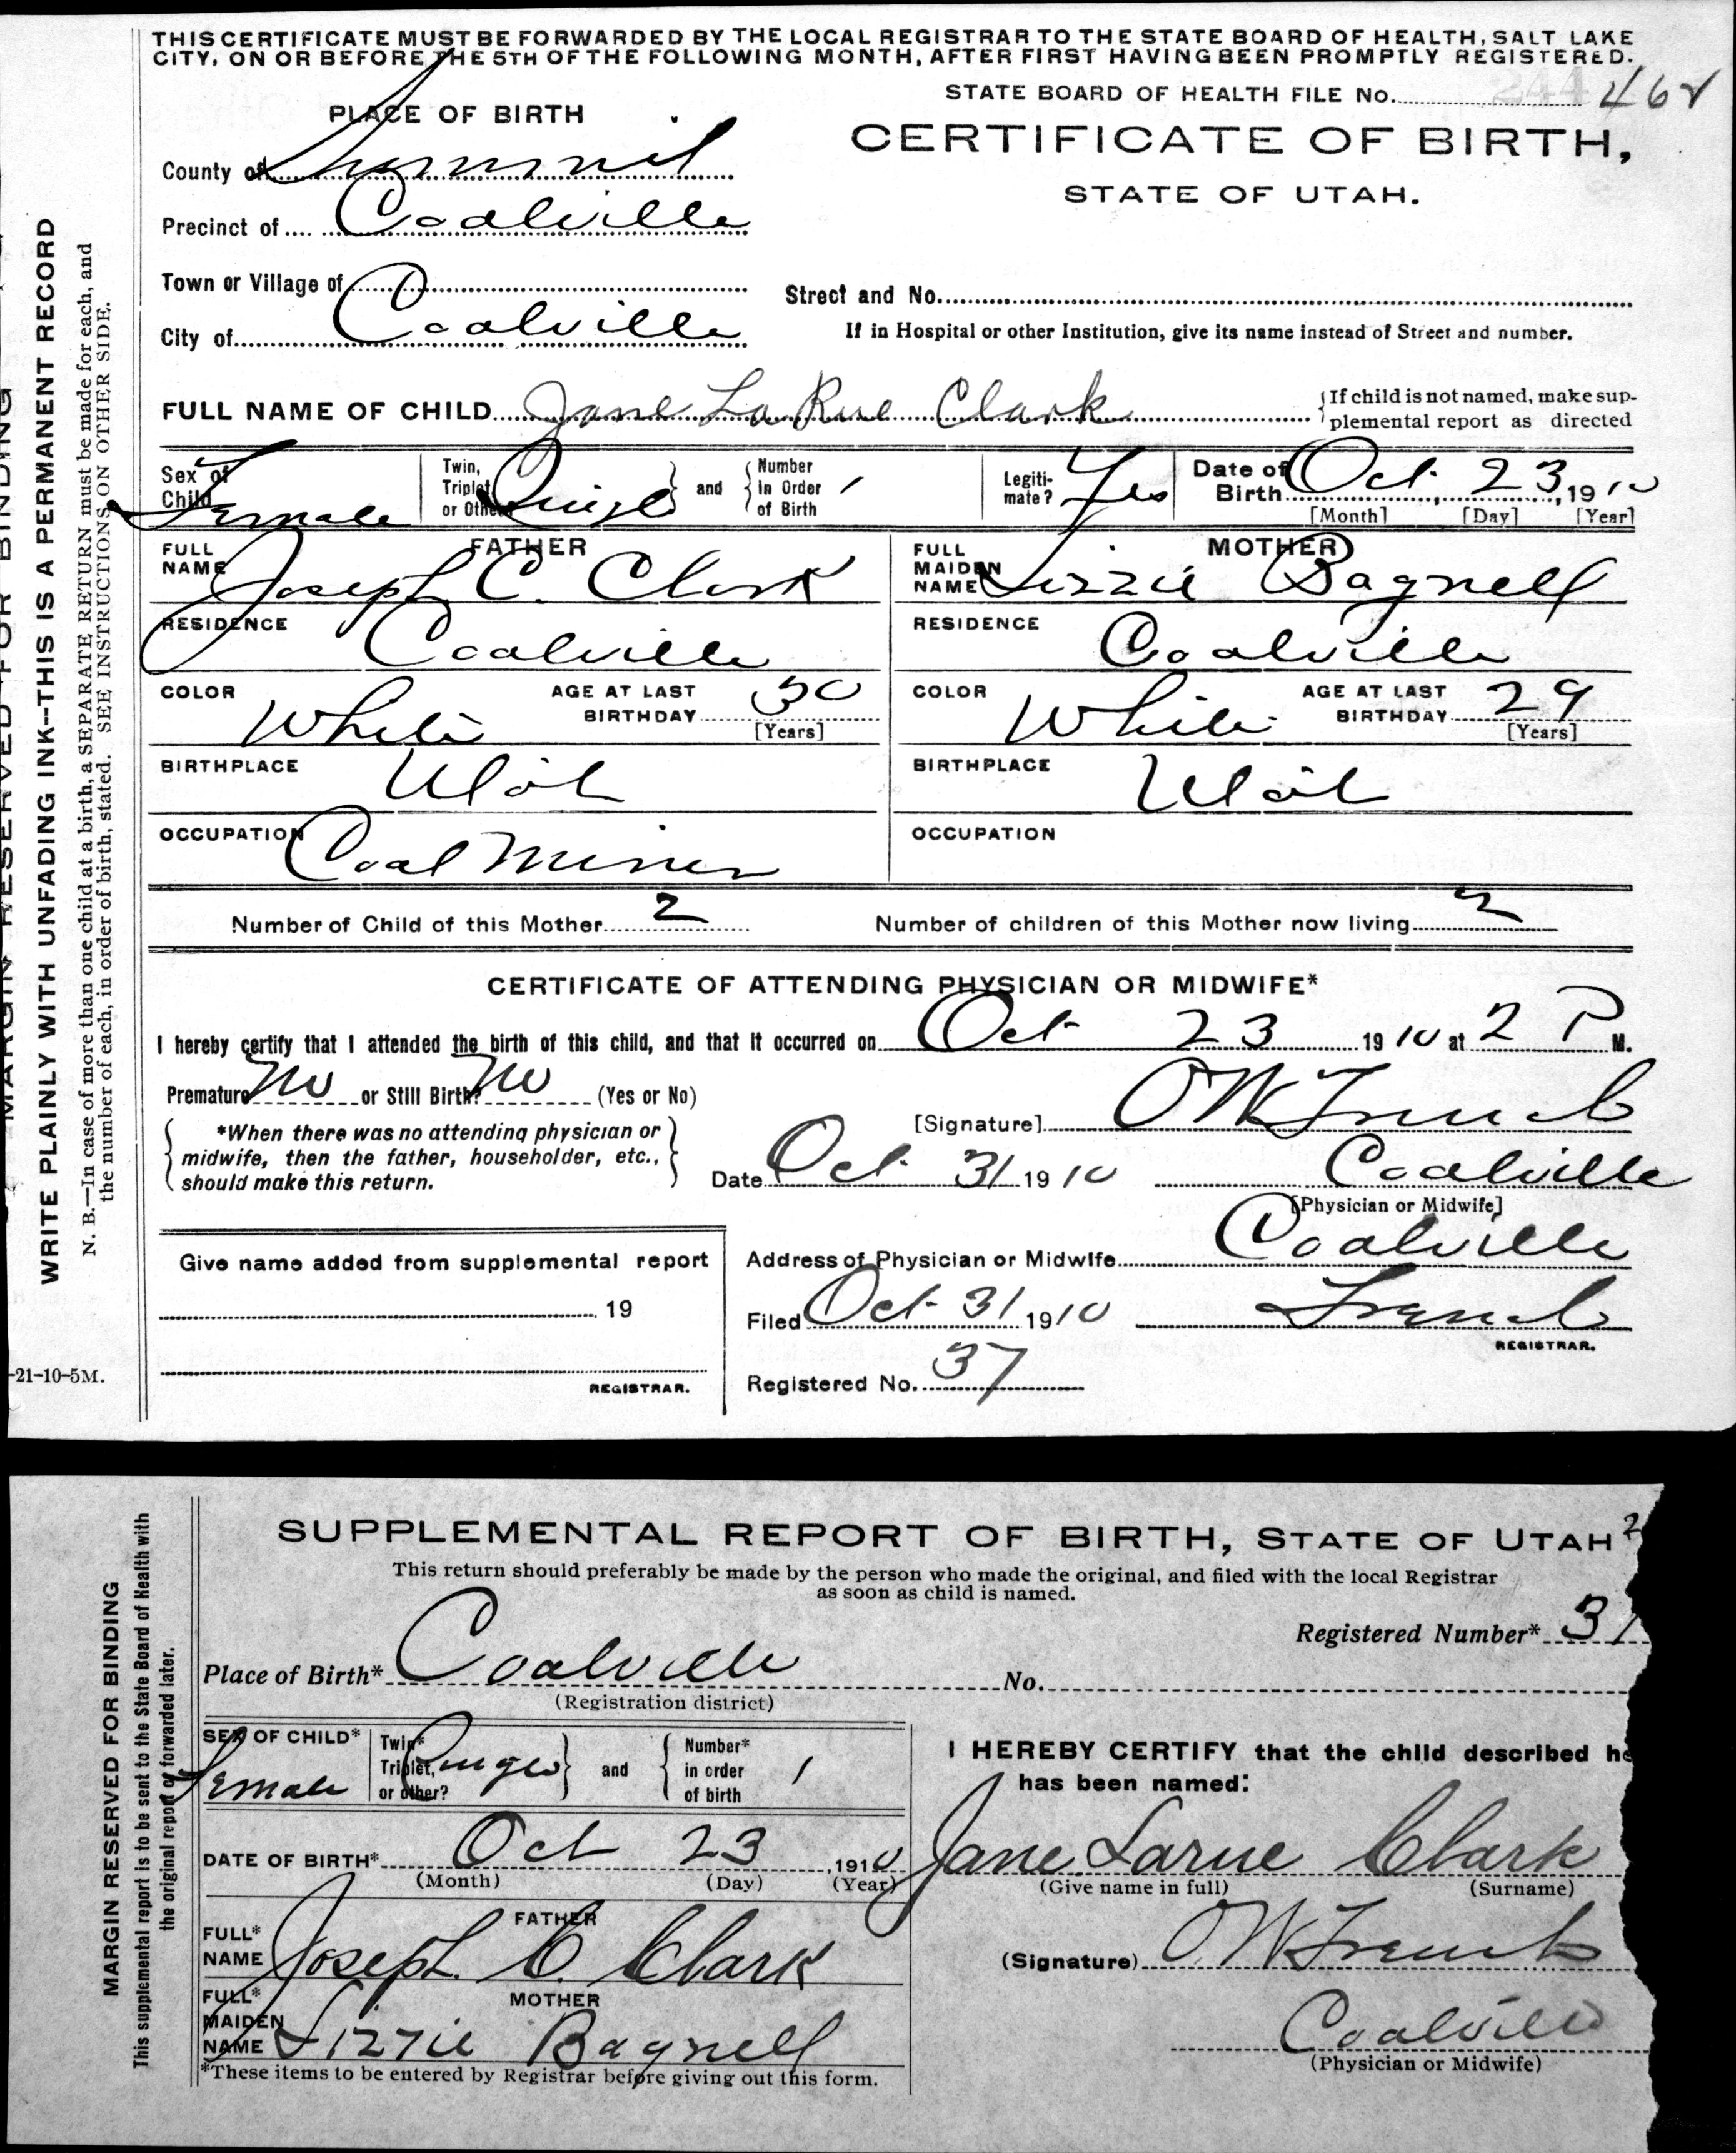 THIS CERTIFICATE MUST BE FORWARDED BY THE LOCAL REGISTRAR TO THE STATE BOARD OF HEALTH, SALT LAKE
CITY, ON OR BEFORE THE 5TH OF THE FOLLOWING MONTH, AFTER FIRST HAVING BEEN PROMPTLY REGISTERED.
STATE BOARD OF HEALTH FILE No. 244 462
PLACE OF BIRTH
CERTIFICATE OF BIRTH,
STATE OF UTAH.
County of Summit
Precinct of Coalville
Town or Village of
Street and No.
City of Coalville
If in Hospital or other Institution, give its name instead of Street and number.
FULL NAME OF CHILD Jane LaRue Clark
If child is not named, make sup-
plemental report as directed
Sex of Child Female
Twin, Triplet or Other Single and Number in Order of Birth 1
Legiti-mate? Yes
Date of Birth Oct. 23, 1910
[Month] [Day] [Year]
FATHER
FULL NAME Joseph C. Clark
RESIDENCE Coalville
COLOR White AGE AT LAST BIRTHDAY 30 [Years]
BIRTHPLACE Utah
OCCUPATION Coal Miner
MOTHER
FULL MAIDEN NAME Lizzie Bagnell
RESIDENCE Coalville
COLOR White AGE AT LAST BIRTHDAY 29 [Years]
BIRTHPLACE Utah
OCCUPATION
Number of Child of this Mother 2 Number of children of this Mother now living 2
CERTIFICATE OF ATTENDING PHYSICIAN OR MIDWIFE*
I hereby certify that I attended the birth of this child, and that it occurred on Oct 23 1910 at 2 P M.
Premature No or Still Birth? No (Yes or No)
*When there was no attending physician or
midwife, then the father, householder, etc.,
should make this return.
[Signature] O W French
Date Oct. 31 1910 Coalville
[Physician or Midwife]
Give name added from supplemental report
19
REGISTRAR.
Address of Physician or Midwife Coalville
Filed Oct. 31 1910 French
REGISTRAR.
Registered No. 37
-21-10-5M.
MARGIN RESERVED FOR BINDING
WRITE PLAINLY WITH UNFADING INK--THIS IS A PERMANENT RECORD
N. B.—In case of more than one child at a birth, a SEPARATE RETURN must be made for each, and
the number of each, in order of birth, stated. SEE INSTRUCTIONS ON OTHER SIDE.
SUPPLEMENTAL REPORT OF BIRTH, STATE OF UTAH 2
This return should preferably be made by the person who made the original, and filed with the local Registrar
as soon as child is named.
Registered Number* 37
Place of Birth* Coalville No.
(Registration district)
SEX OF CHILD* Female
Twin* Triplet, or other? Single and Number* in order of birth 1
DATE OF BIRTH* Oct 23, 1910
(Month) (Day) (Year)
FATHER
FULL* NAME Joseph C. Clark
MOTHER
FULL* MAIDEN NAME Lizzie Bagnell
*These items to be entered by Registrar before giving out this form.
I HEREBY CERTIFY that the child described he
has been named:
Jane Larue Clark
(Give name in full) (Surname)
(Signature) O W French
Coalville
(Physician or Midwife)
MARGIN RESERVED FOR BINDING
This supplemental report is to be sent to the State Board of Health with
the original report or forwarded later.